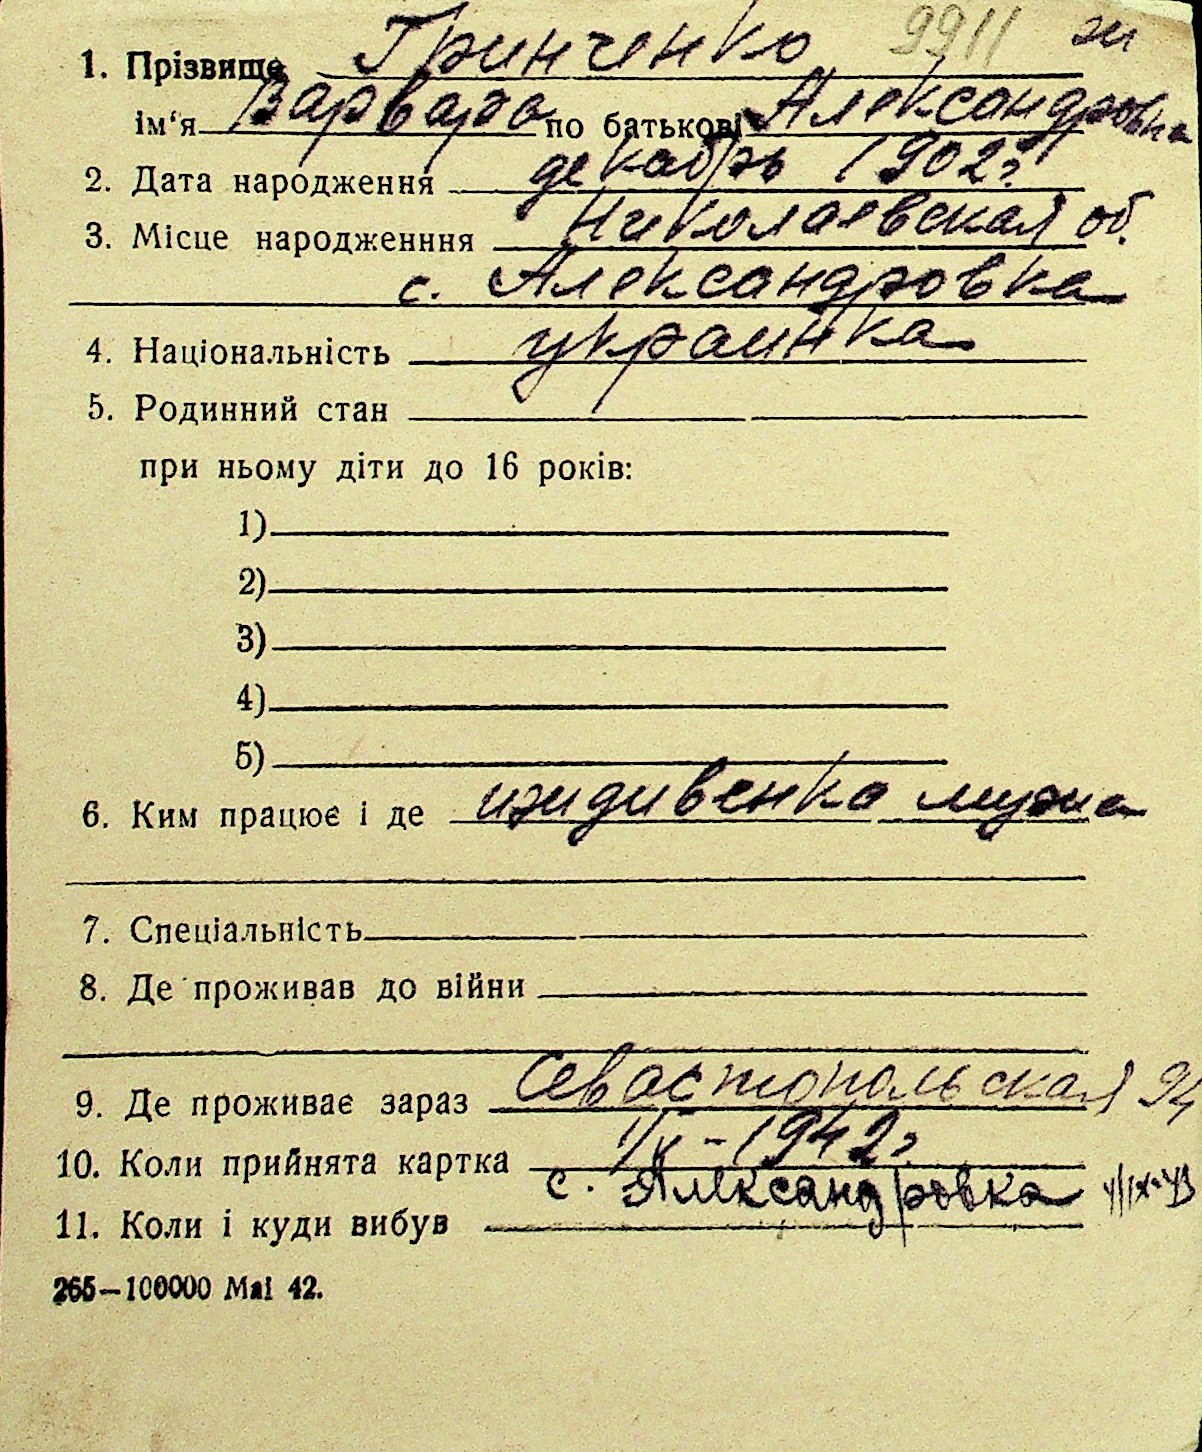 9911 ж
1. Прізвище Гринченко
ім'я Варвара по батькові Александровна
2. Дата народження декабрь 1902г
3. Місце народженння Николаевская об.
с. Александровка
4. Національність украинка
5. Родинний стан
при ньому діти до 16 років:
1)
2)
3)
4)
5)
6. Ким працює і де иждивенка мужа
7. Спеціальність
8. Де проживав до війни
9. Де проживає зараз Севастопольская 94
10. Коли прийнята картка 1942г
11. Коли і куди вибув с. Александровка
265—100000 Маі 42.